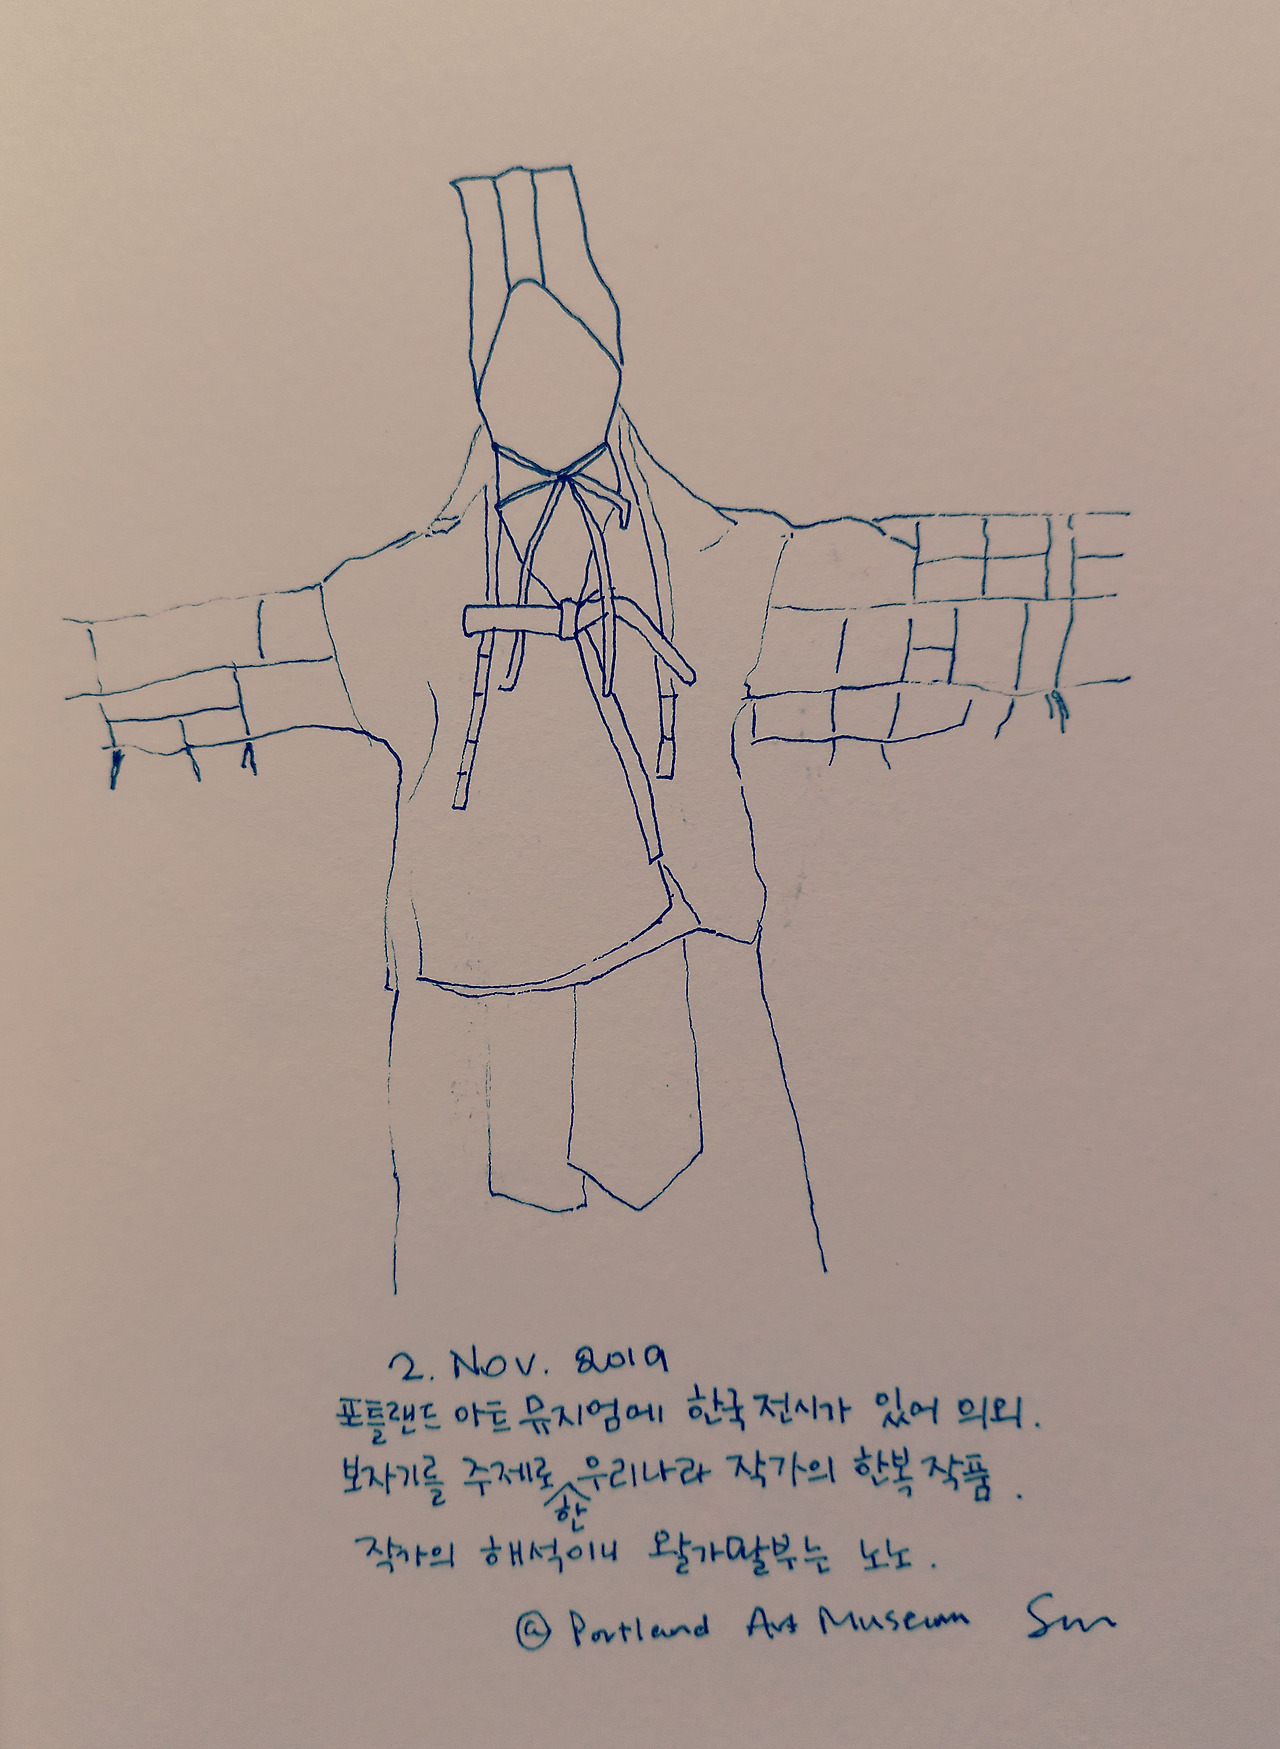 2. Nov. 2019
포틀랜드 아트 뮤지엄에 한국 전시가 있어 의외.
보자기를 주제로 한 우리나라 작가의 한복 작품.
작가의 해석이니 왈가말부는 노노.
@ Portland Art Museum